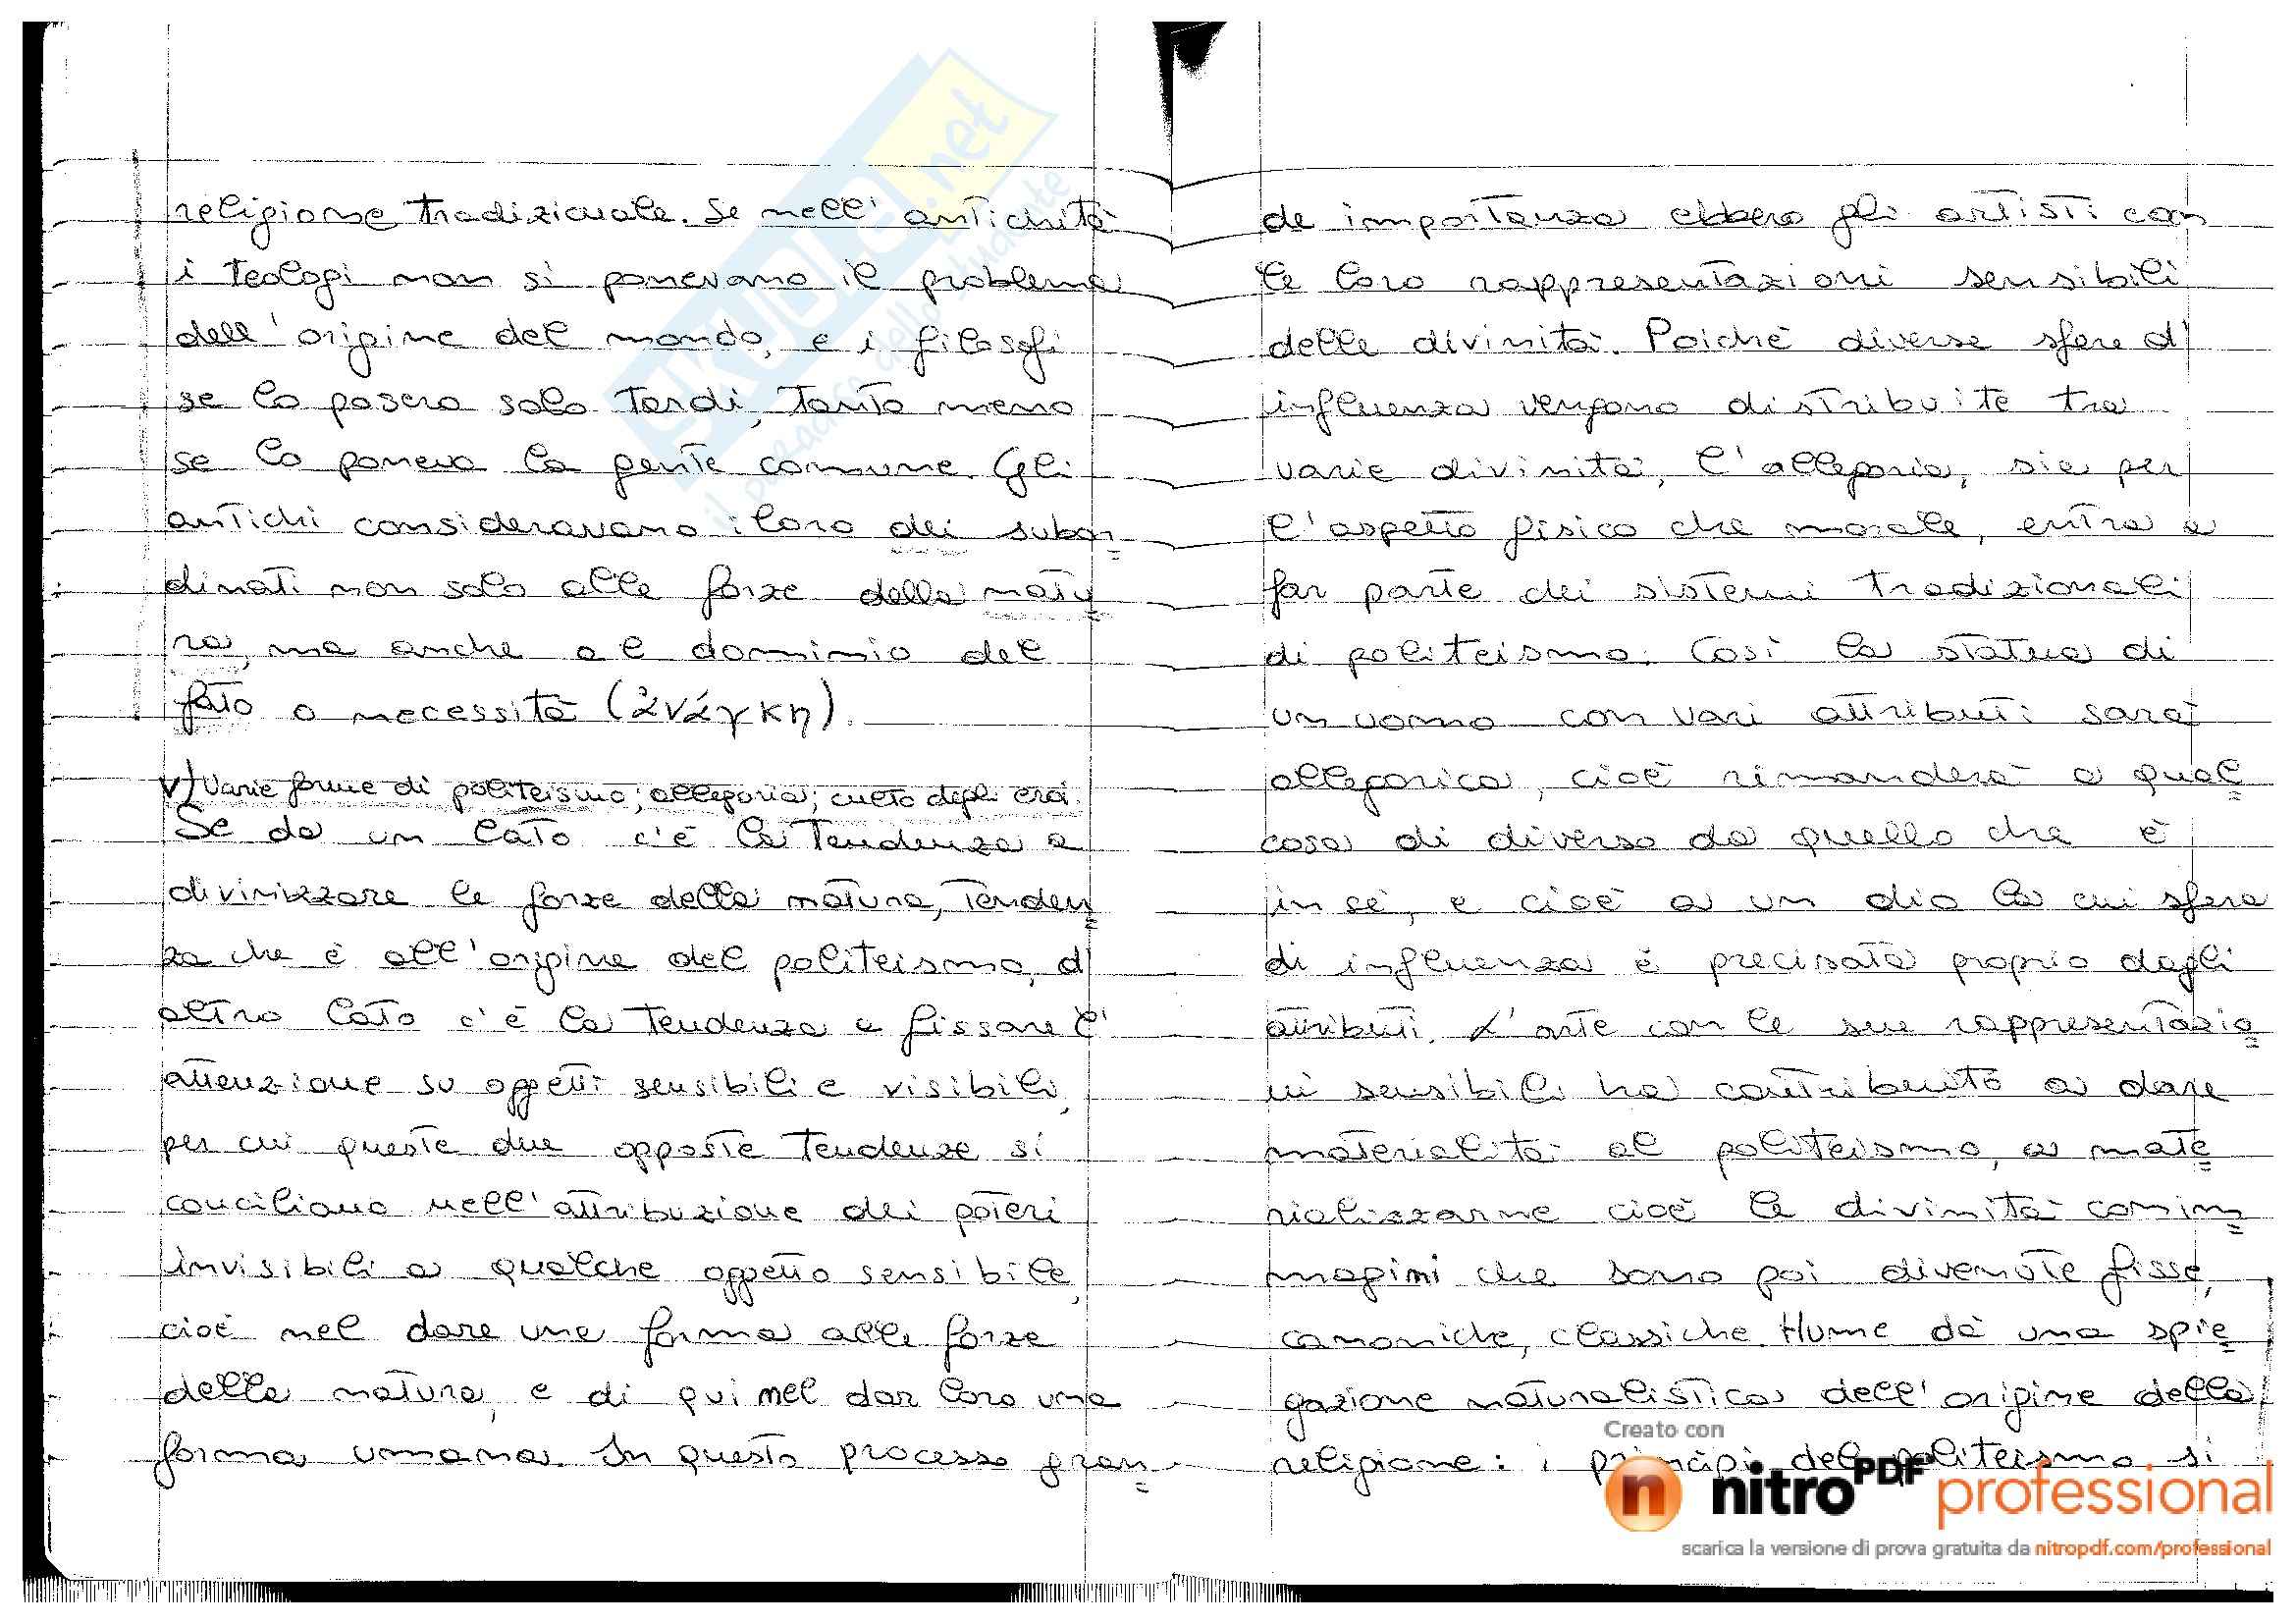 religione tradizionale. Se nell'antichità
i teologi non si ponevano il problema
dell'origine del mondo, e i filosofi
se lo posero solo tardi, tanto meno
se lo poneva la gente comune. Gli
antichi consideravano i loro dei subor=
dinati non solo alle forze della natu=
ra, ma anche al dominio del
fato o necessità (ἀνάγκη).
V) Varie forme di politeismo; allegoria; culto degli eroi.
Se da un lato c'è la tendenza a
divinizzare le forze della natura, tenden=
za che è all'origine del politeismo, d'
altro lato c'è la tendenza a fissare l'
attenzione su oggetti sensibili e visibili,
per cui queste due opposte tendenze si
conciliano nell'attribuzione dei poteri
invisibili a qualche oggetto sensibile,
cioè nel dare una forma alle forze
della natura, e di qui nel dar loro una
forma umana. In questo processo gran=
de importanza ebbero gli artisti con
le loro rappresentazioni sensibili
delle divinità. Poichè diverse sfere d'
influenza vengono distribuite tra
varie divinità, l'allegoria, sia per
l'aspetto fisico che morale, entra a
far parte dei sistemi tradizionali
di politeismo. Così la statua di
un uomo con vari attributi sarà
allegorica, cioè rimanderà a qual=
cosa di diverso da quello che è
in sé, e cioè a un dio la cui sfera
di influenza è precisata proprio dagli
attributi. L'arte con le sue rappresentazio=
ni sensibili ha contribuito a dare
materialità al politeismo, a mate=
rializzarne cioè le divinità con im=
magini che sono poi divenute fisse,
canoniche, classiche. Hume dà una spie=
gazione naturalistica dell'origine della
religione: i principi del politeismo si
SKUOLA.net
il paradiso dello studente
Creato con
nitro PDF professional
scarica la versione di prova gratuita da nitropdf.com/professional